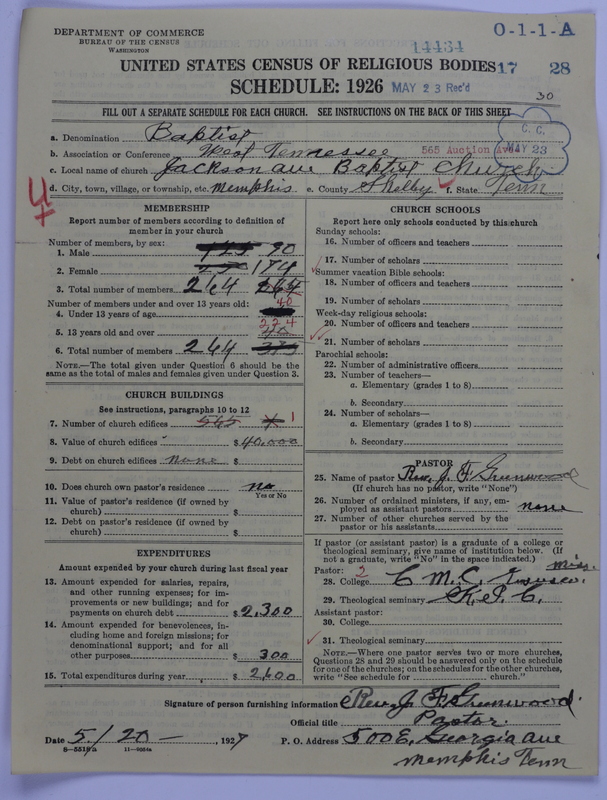 DEPARTMENT OF COMMERCE
BUREAU OF THE CENSUS
WASHINGTON
0-1-1-A
14434
UNITED STATES CENSUS OF RELIGIOUS BODIES 17 28
SCHEDULE: 1926 MAY 23 Rec'd
30
FILL OUT A SEPARATE SCHEDULE FOR EACH CHURCH. SEE INSTRUCTIONS ON THE BACK OF THIS SHEET
C. C.
MAY 23
a. Denomination Baptist
b. Association or Conference West Tennessee 565 Auction Ave
c. Local name of church Jackson ave Baptist Church
d. City, town, village, or township, etc. Memphis e. County Shelby f. State Tenn
MEMBERSHIP
Report number of members according to definition of
member in your church
Number of members, by sex:
1. Male 125 90
2. Female 174
3. Total number of members 264 264
Number of members under and over 13 years old:
4. Under 13 years of age 40
5. 13 years old and over 224
6. Total number of members 264
NOTE.—The total given under Question 6 should be
same as the total of males and females given under Question 3.
CHURCH BUILDINGS
See instructions, paragraphs 10 to 12
7. Number of church edifices 565 1
8. Value of church edifices $ 40,000
9. Debt on church edifices none $
10. Does church own pastor's residence no
Yes or No
11. Value of pastor's residence (if owned by
church) $
12. Debt on pastor's residence (if owned by
church) $
EXPENDITURES
Amount expended by your church during last fiscal year
13. Amount expended for salaries, repairs,
and other running expenses; for im-
provements or new buildings; and for
payments on church debt $ 2,300
14. Amount expended for benevolences, in-
cluding home and foreign missions; for
denominational support; and for all
other purposes $ 300
15. Total expenditures during year $ 2,600
CHURCH SCHOOLS
Report here only schools conducted by this church
Sunday schools:
16. Number of officers and teachers
17. Number of scholars
Summer vacation Bible schools:
18. Number of officers and teachers
19. Number of scholars
Week-day religious schools:
20. Number of officers and teachers
21. Number of scholars
Parochial schools:
22. Number of administrative officers
23. Number of teachers—
a. Elementary (grades 1 to 8)
b. Secondary
24. Number of scholars—
a. Elementary (grades 1 to 8)
b. Secondary
PASTOR
25. Name of pastor Rev. J. F. Greenwood
(If church has no pastor, write "None")
26. Number of ordained ministers, if any, em-
ployed as assistant pastors none
27. Number of other churches served by the
pastor or his assistants
If pastor (or assistant pastor) is a graduate of a college or
theological seminary, give name of institution below. (If
not a graduate, write "No" in the space indicated.)
Pastor: 2
28. College C M C
29. Theological seminary
Assistant pastor:
30. College
31. Theological seminary
NOTE.—Where one pastor serves two or more churches,
Questions 28 and 29 should be answered only on the schedule
for one of the churches; on the schedules for the other churches,
write "See schedule for church."
Signature of person furnishing information Rev. J. F. Greenwood.
Official title Pastor.
Date 5/20 — , 1927 P. O. Address 500 E. Georgia ave
Memphis Tenn